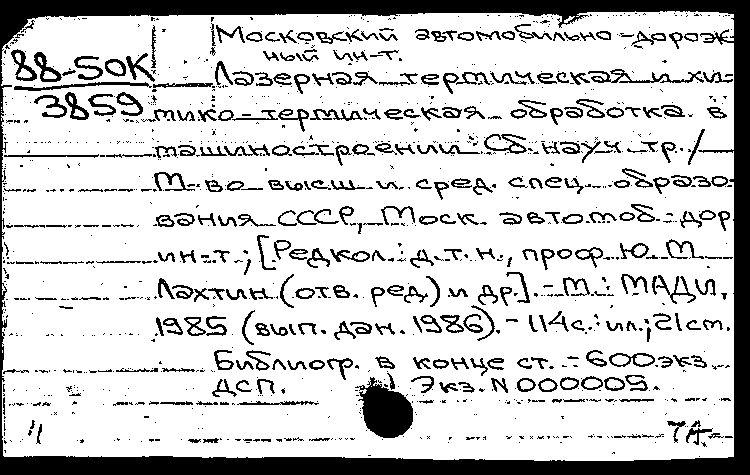 Московский автомобильно-дорож-
ный ин-т.
88-50К
3859
Лазерная термическая и хи-
мико-термическая обработка в
машиностроении: Сб. науч. тр./
М-во высш и сред. спец. образо-
вания СССР, Моск. автомоб.-дор
ин-т; [Редкол.: д.т.н., проф. Ю. М.
Лахтин (отв. ред) и др.]. - М.: МАДИ,
1985 (вып. дан. 1986). - 114с.: ил.; 21см.
Библиогр. в конце ст. - 600экз
ДСП. Экз. N 000005.